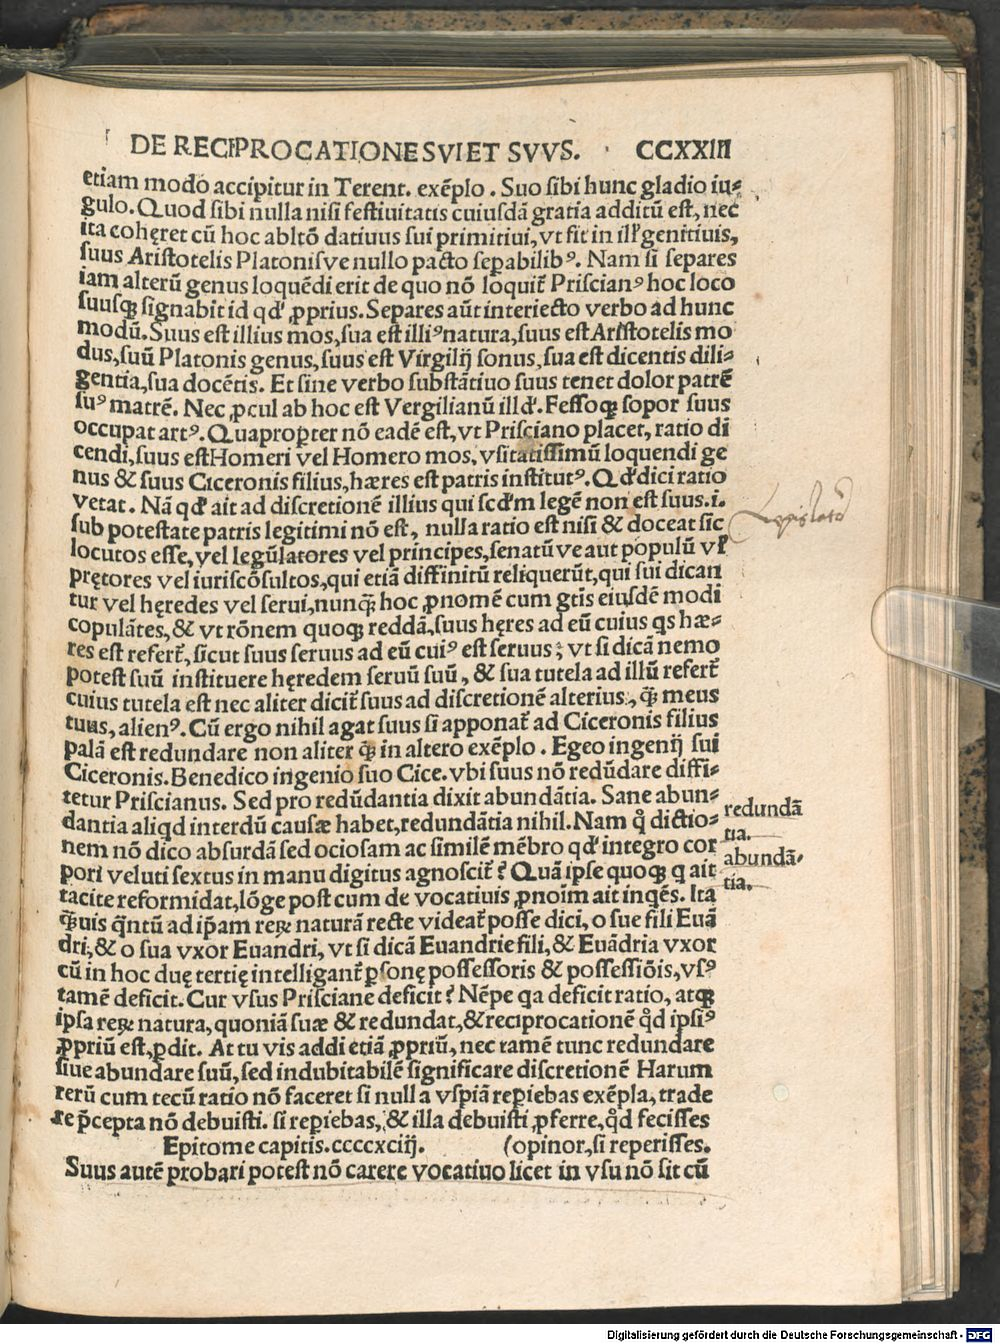 DE RECIPROCATIONE SVI ET SVVS. CCXXIII
etiam modo accipitur in Terent. exẽplo. Suo sibi hunc gladio iu-
gulo. Quod sibi nulla nisi festiuitatis cuiusdã gratia additũ est, nec
ita cohęret cũ hoc abltõ datiuus sui primitiui, vt fit in illꝭ genitiuis,
suus Aristotelis Platonisve nullo pacto sepabilibꝰ. Nam si separes
iam alterũ genus loquẽdi erit de quo nõ loquit̃ Priscianꝰ hoc loco
suusqꝫ signabit id qd' ꝓprius. Separes aũt interiecto verbo ad hunc
modũ. Suus est illius mos, sua est illiꝰ natura, suus est Aristotelis mo
dus, suũ Platonis genus, suus est Virgilij sonus, sua est dicentis dili-
gentia, sua docẽtis. Et sine verbo substãtiuo suus tenet dolor patrẽ
suꝰ matrẽ. Nec ꝓcul ab hoc est Vergilianũ illd'. Fessoqꝫ sopor suus
occupat artꝰ. Quapropter nõ eadẽ est, vt Prisciano placet, ratio di
cendi, suus est Homeri vel Homero mos, vsitatissimũ loquendi ge
nus & suus Ciceronis filius, hæres est patris institutꝰ. Qd' dici ratio
vetat. Nã qd' ait ad discretionẽ illius qui scd'm legẽ non est suus .i.
sub potestate patris legitimi nõ est, nulla ratio est nisi & doceat sic
locutos esse, vel legũlatores vel principes, senatũ ve aut populũ vꝉ
prętores vel iuriscõsultos, qui etiã diffinitũ reliquerũt, qui sui dican
tur vel hęredes vel serui, nunqꝫ̃ hoc ꝓnomẽ cum gtis eiusdẽ modi
copulãtes, & vt rõnem quoqꝫ reddã, suus hęres ad eũ cuius qs hæ-
res est refert̃, sicut suus seruus ad eũ cuiꝰ est seruus; vt si dicã nemo
potest suũ instituere hęredem seruũ suũ, & sua tutela ad illũ refert̃
cuius tutela est nec aliter dicit̃ suus ad discretionẽ alterius, qꝫ̃ meus
tuus, alienꝰ. Cũ ergo nihil agat suus si apponat̃ ad Ciceronis filius
palã est redundare non aliter qꝫ̃ in altero exẽplo. Egeo ingenij sui
Ciceronis. Benedico ingenio suo Cice. vbi suus nõ redũdare diffi-
tetur Priscianus. Sed pro redũdantia dixit abundãtia. Sane abun-
dantia aliqd interdũ causæ habet, redundãtia nihil. Nam q̊ dictio-
nem nõ dico absurdã sed ociosam ac similẽ mẽbro qd' integro cor
pori veluti sextus in manu digitus agnoscit̃? Quã ipse quoqꝫ q ait
tacite reformidat, lõge post cum de vocatiuis ꝓnoim ait inqẽs. Ita
qꝫ̃uis q̃ntũ ad ip̃am reꝝ naturã recte videat̃ posse dici, o sue fili Euã
dri, & o sua vxor Euandri, vt si dicã Euandrie fili, & Euãdria vxor
cũ in hoc duę tertię intelligant̃ ꝑsonę possessoris & possessiõis, vsꝰ
tamẽ deficit. Cur vsus Prisciane deficit? Nẽpe qa deficit ratio, atqꝫ
ipsa reꝝ natura, quoniã suæ & redundat, & reciprocationẽ q̊d ipsiꝰ
ꝓpriũ est, ꝑdit. At tu vis addi etiã ꝓpriũ, nec tamẽ tunc redundare
siue abundare suũ, sed indubitabilẽ significare discretionẽ Harum
rerũ cum tecũ ratio nõ faceret si nulla vspiã repiebas exẽpla, trade
re p̃cepta nõ debuisti. si repiebas, & illa debuisti ꝓferre, q̊d fecisses
(opinor, si reperisses.
Epitome capitis. ccccxciij.
Suus autẽ probari potest nõ carere vocatiuo licet in vsu nõ sit cũ
redundã
tia.
abundã-
tia.
Digitalisierung gefördert durch die Deutsche Forschungsgemeinschaft - DFG